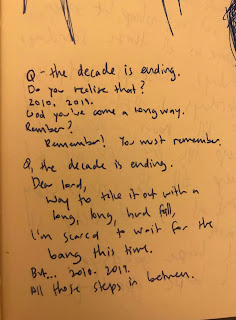 Q - the decade is ending.
Do you realise that?
2010. 2019.
God you've come a long way.
Remember?
Remember! You must remember.
Q, the decade is ending.
Dear lord,
way to take it out with a
long, long, hard fall,
I'm scared to wait for the
bang this time.
But... 2010. 2019.
All those steps in between.